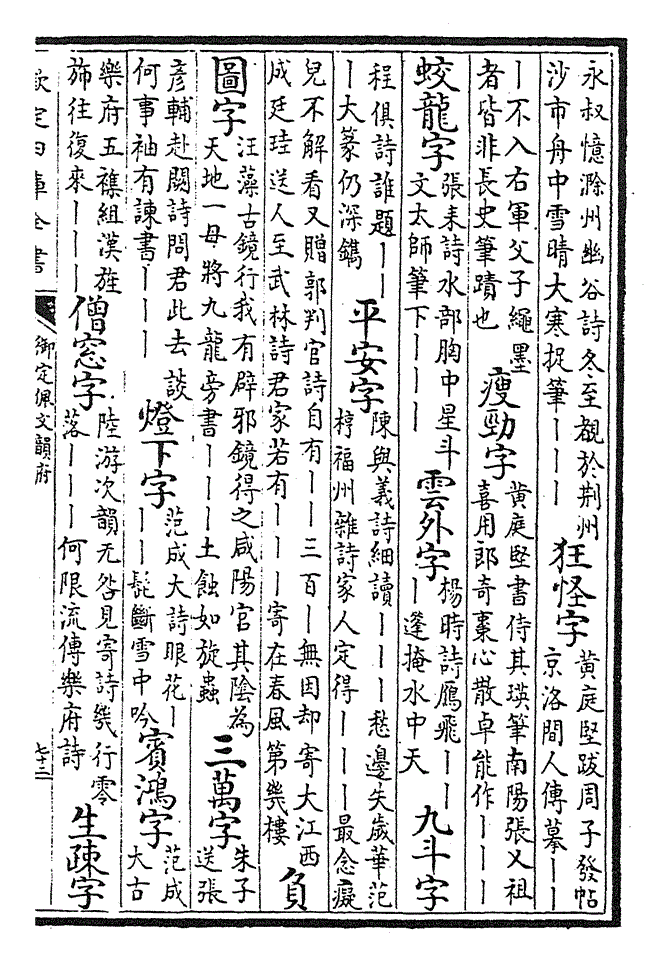 永叔憶滁州幽谷詩冬至親於荆州
沙市舟中雪晴大寒捉筆丨丨丨
狂怪字
黄庭堅跋周子發帖
京洛間人傳摹丨丨
丨不入右軍父子繩墨
者皆非長史筆蹟也
瘦勁字
黄庭堅書侍其瑛筆南陽張乂祖
喜用郎奇棗心散卓能作丨丨丨
蛟龍字
張耒詩水部胸中星斗
文太師筆下丨丨丨
雲外字
楊時詩鴈飛丨丨
丨蓬掩水中天
九斗字
程俱詩誰題丨丨
丨大篆仍深鐫
平安字
陳與義詩細讀丨丨丨愁邊失歲華范
梈福州雜詩家人定得丨丨丨最念癡
兒不解看又贈郭判官詩自有丨丨三百丨無因却寄大江西
成廷珪送人至武林詩君家若有丨丨丨寄在春風第幾樓
負
圖字
汪藻古鏡行我有辟邪鏡得之咸陽官其陰為
天地一毋將九龍旁書丨丨丨土蝕如旋蟲
三萬字
朱子
送張
彦輔赴闕詩問君此去談
何事袖有諫書丨丨丨
燈下字
范成大詩眼花丨
丨丨髭斷雪中吟
賓鴻字
范成
大古
樂府五襍組漢旌
斾往復來丨丨丨
僧窓字
陸游次韻无咎見寄詩幾行零
落丨丨丨何限流傳樂府詩
生疎字
欽定四庫全書
御定佩文韻府
七十三